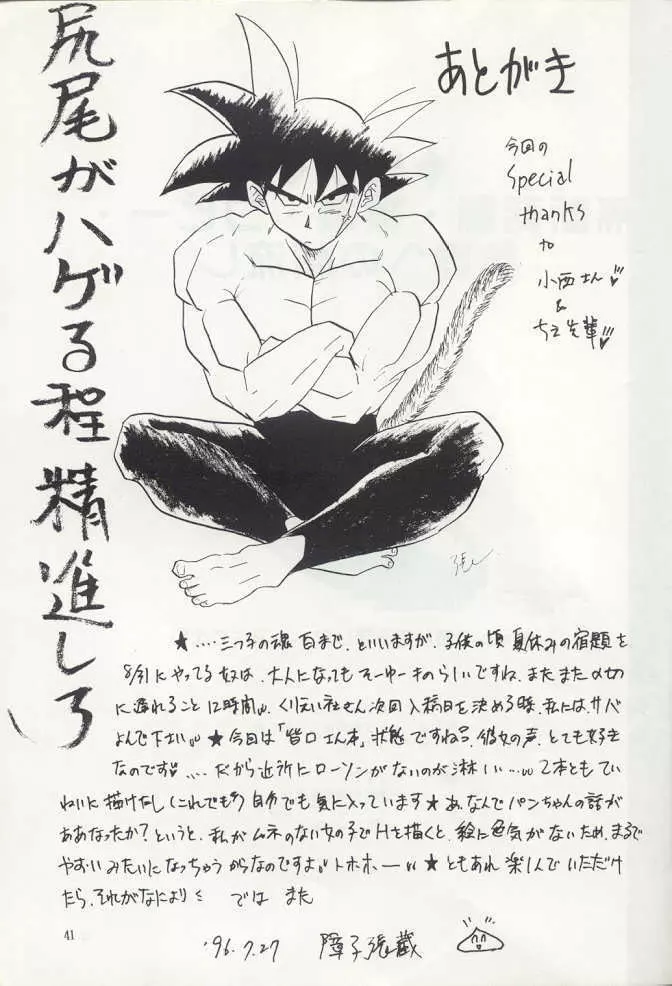 尻尾がハゲる程精進しろ
あとがき
今回の
Special
thanks
to
小西さん
&
先輩
★‥‥三つ子の魂百まで、といいますが、子供の頃夏休みの宿題を
8/31にやってる奴は、大人になってもそーゆーものらしいですね。またまた〆切
に遅れること12時間。くりえい社さん次回入稿日を決める時、私には、サバ
よんで下さい。★今日は「皆口さん本」状態ですね。彼女の声、とても好き
なのです‥‥だから近所にローソンがないのが淋しい‥‥。2本ともてい
ねいに描けたし(これでも)自分でも気に入っています★あ、なんでパンちゃんの話が
ああなったか?というと、私がムネのない女の子でHを描くと、絵に色気がないため、まるで
やおいみたいになっちゃうからなのですよ。トホホー★ともあれ楽しんでいただけ
たら、それがなにより では また
41
'96.7.27 障子張蔵